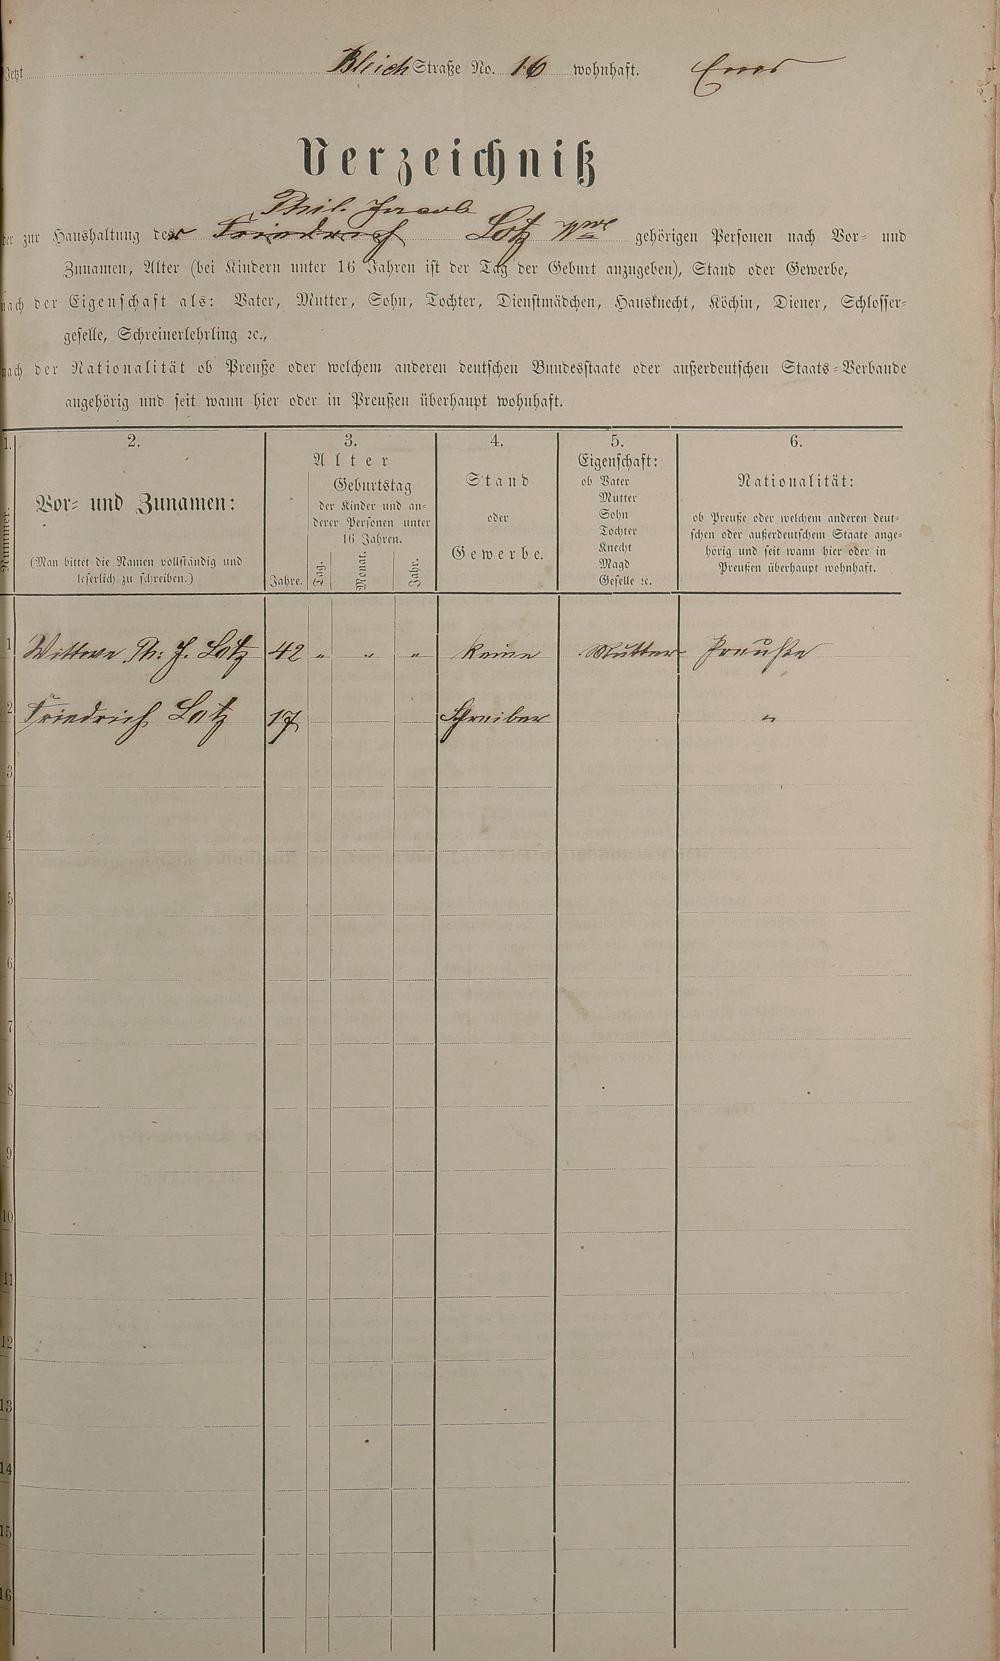 Jetzt Bleich Straße No. 16 wohnhaft. Ems
Verzeichniß
Phil. Jacob
der zur Haushaltung der Friedrich Lotz Wwe gehörigen Personen nach Vor- und
Zunamen, Alter (bei Kindern unter 16 Jahren ist der Tag der Geburt anzugeben), Stand oder Gewerbe,
nach der Eigenschaft als: Vater, Mutter, Sohn, Tochter, Dienstmädchen, Hausknecht, Köchin, Diener, Schlosser-
geselle, Schreinerlehrling ꝛc.,
nach der Nationalität ob Preuße oder welchem anderen deutschen Bundesstaate oder außerdeutschen Staats-Verbande
angehörig und seit wann hier oder in Preußen überhaupt wohnhaft.
1. 2. 3. 4. 5. 6.
Nummer.
Vor- und Zunamen:
(Man bittet die Namen vollständig und
leserlich zu schreiben.)
Alter
Jahre.
Geburtstag
der Kinder und an-
derer Personen unter
16 Jahren.
Tag. Monat. Jahr.
Stand
oder
Gewerbe.
Eigenschaft:
ob Vater
Mutter
Sohn
Tochter
Knecht
Magd
Geselle ꝛc.
Nationalität:
ob Preuße oder welchem anderen deut-
schen oder außerdeutschem Staate ange-
hörig und seit wann hier oder in
Preußen überhaupt wohnhaft.
1 Wittwe Ph: J. Lotz 42 " " " keine Mutter Preuße
2 Friedrich Lotz 17 Schreiber "
3
4
5
6
7
8
9
10
11
12
13
14
15
16